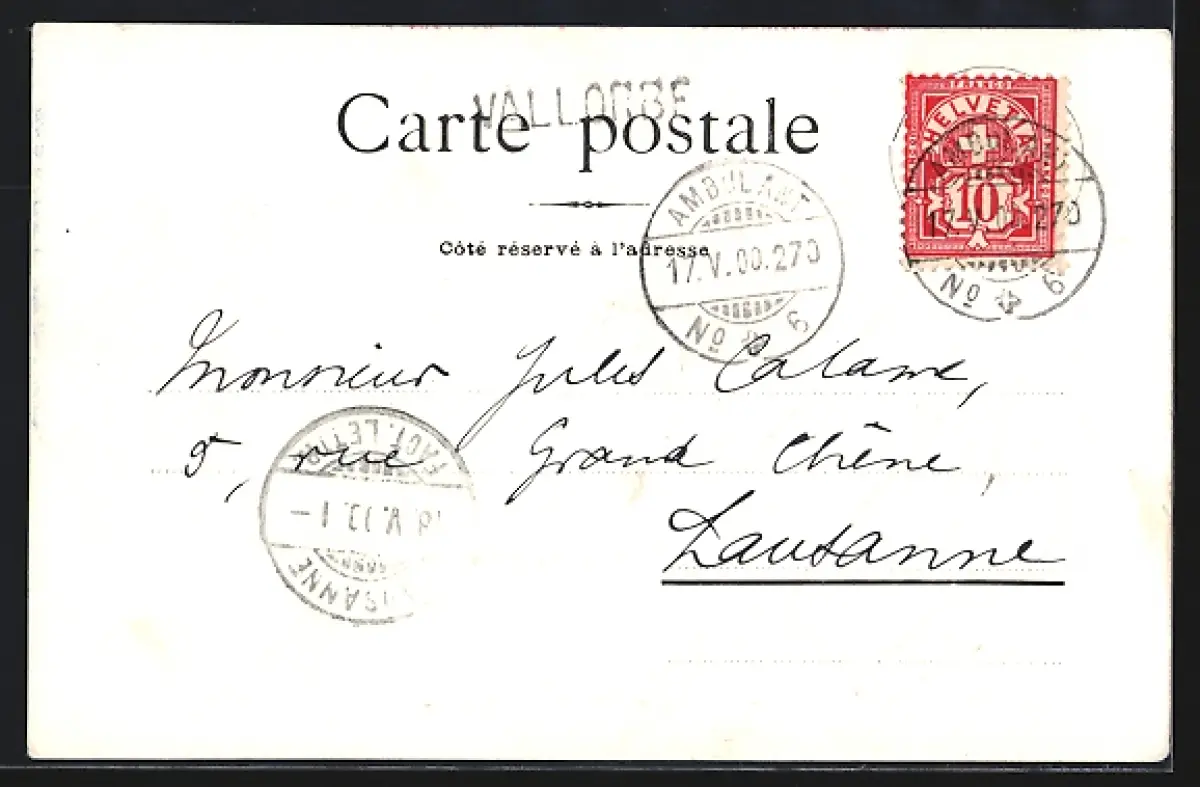 VALLORBE
Carte postale
Côté réservé à l'adresse
FRANCO
HELVETIA
10
AMBULANT
17.V.00.270
No 6
AMBULANT
17.V.00.270
No 6
Monsieur Jules Calame,
5, rue Grand Chêne,
Lausanne
FACT. LETTR
V.00.1
LAUSANNE